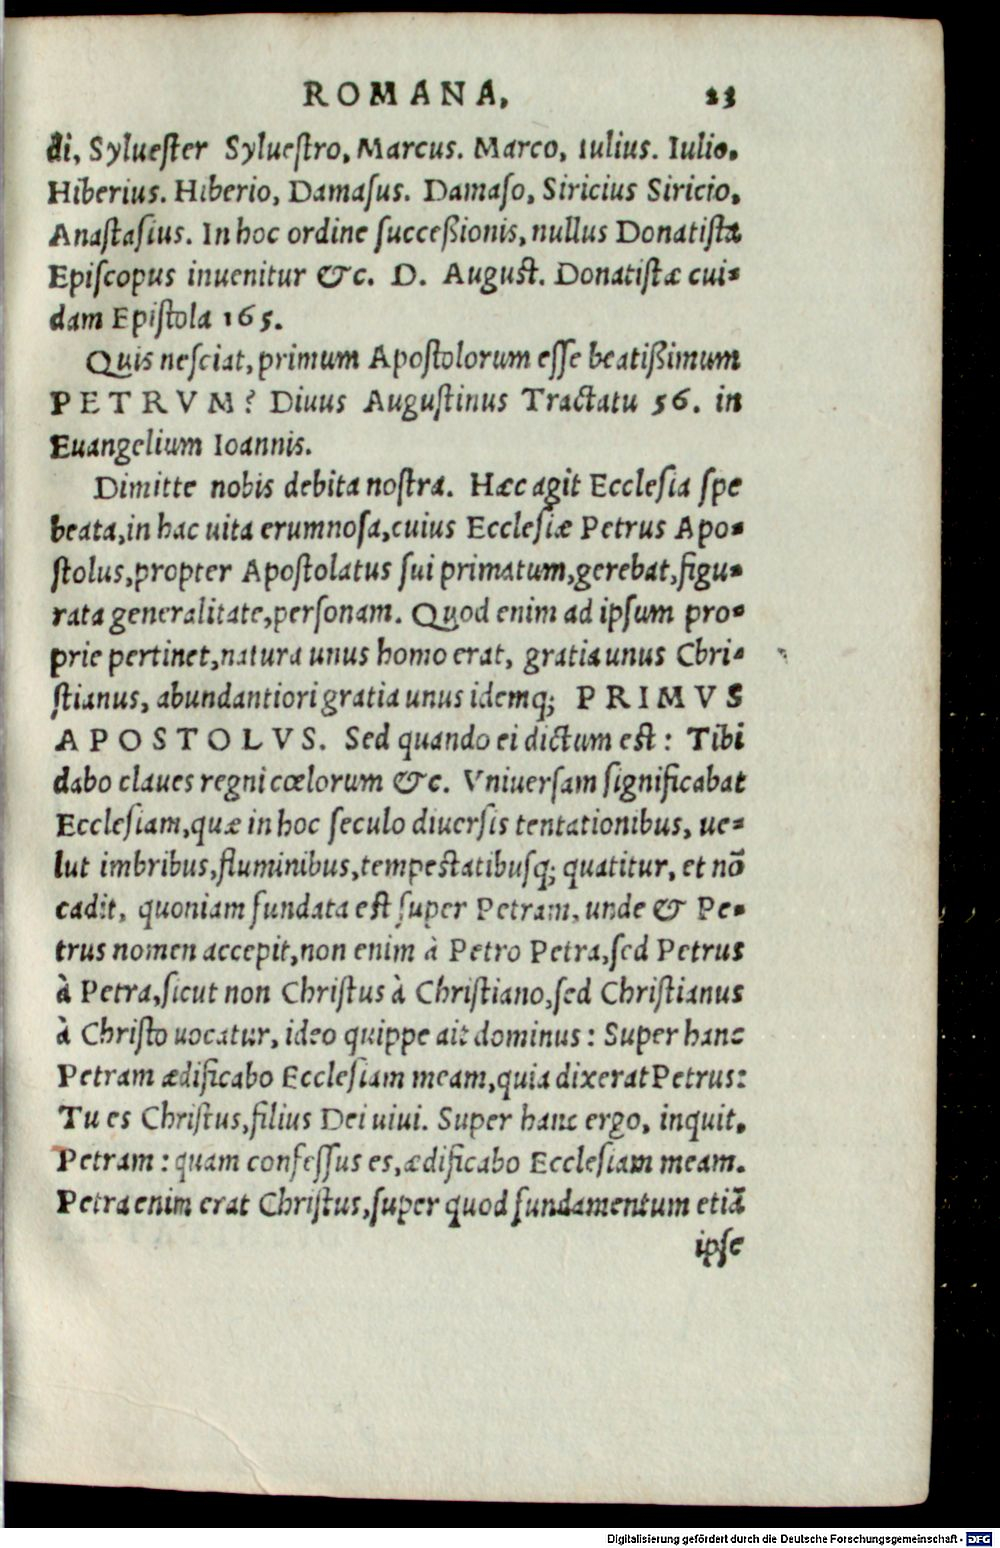 ROMANA. 23
di, Sylueſter Sylueſtro, Marcus. Marco, Iulius. Iulio.
Hiberius. Hiberio, Damaſus. Damaſo, Siricius Siricio,
Anaſtaſius. In hoc ordine ſucceßionis, nullus Donatiſta
Epiſcopus inuenitur &c. D. Auguſt. Donatiſtæ cui-
dam Epiſtola 165.
Quis neſciat, primum Apoſtolorum eſſe beatißimum
PETRVM? Diuus Auguſtinus Tractatu 56. in
Euangelium Ioannis.
Dimitte nobis debita noſtra. Hæc agit Eccleſia ſpe
beata, in hac uita erumnoſa, cuius Eccleſiæ Petrus Apo-
ſtolus, propter Apoſtolatus ſui primatum, gerebat, figu-
rata generalitate, perſonam. Quod enim ad ipſum pro-
prie pertinet, natura unus homo erat, gratia unus Chri-
ſtianus, abundantiori gratia unus idemq; PRIMVS
APOSTOLVS. Sed quando ei dictum eſt: Tibi
dabo claues regni cœlorum &c. Vniuerſam ſignificabat
Eccleſiam, quæ in hoc ſeculo diuerſis tentationibus, ue-
lut imbribus, fluminibus, tempeſtatibuſq; quatitur, et nō
cadit, quoniam fundata eſt ſuper Petram, unde & Pe-
trus nomen accepit, non enim à Petro Petra, ſed Petrus
à Petra, ſicut non Chriſtus à Chriſtiano, ſed Chriſtianus
à Chriſto uocatur, ideo quippe ait dominus: Super hanc
Petram ædificabo Eccleſiam meam, quia dixerat Petrus:
Tu es Chriſtus, filius Dei uiui. Super hanc ergo, inquit,
Petram: quam confeſſus es, ædificabo Eccleſiam meam.
Petra enim erat Chriſtus, ſuper quod fundamentum etiā
ipſe
Digitalisierung gefördert durch die Deutsche Forschungsgemeinschaft - DFG